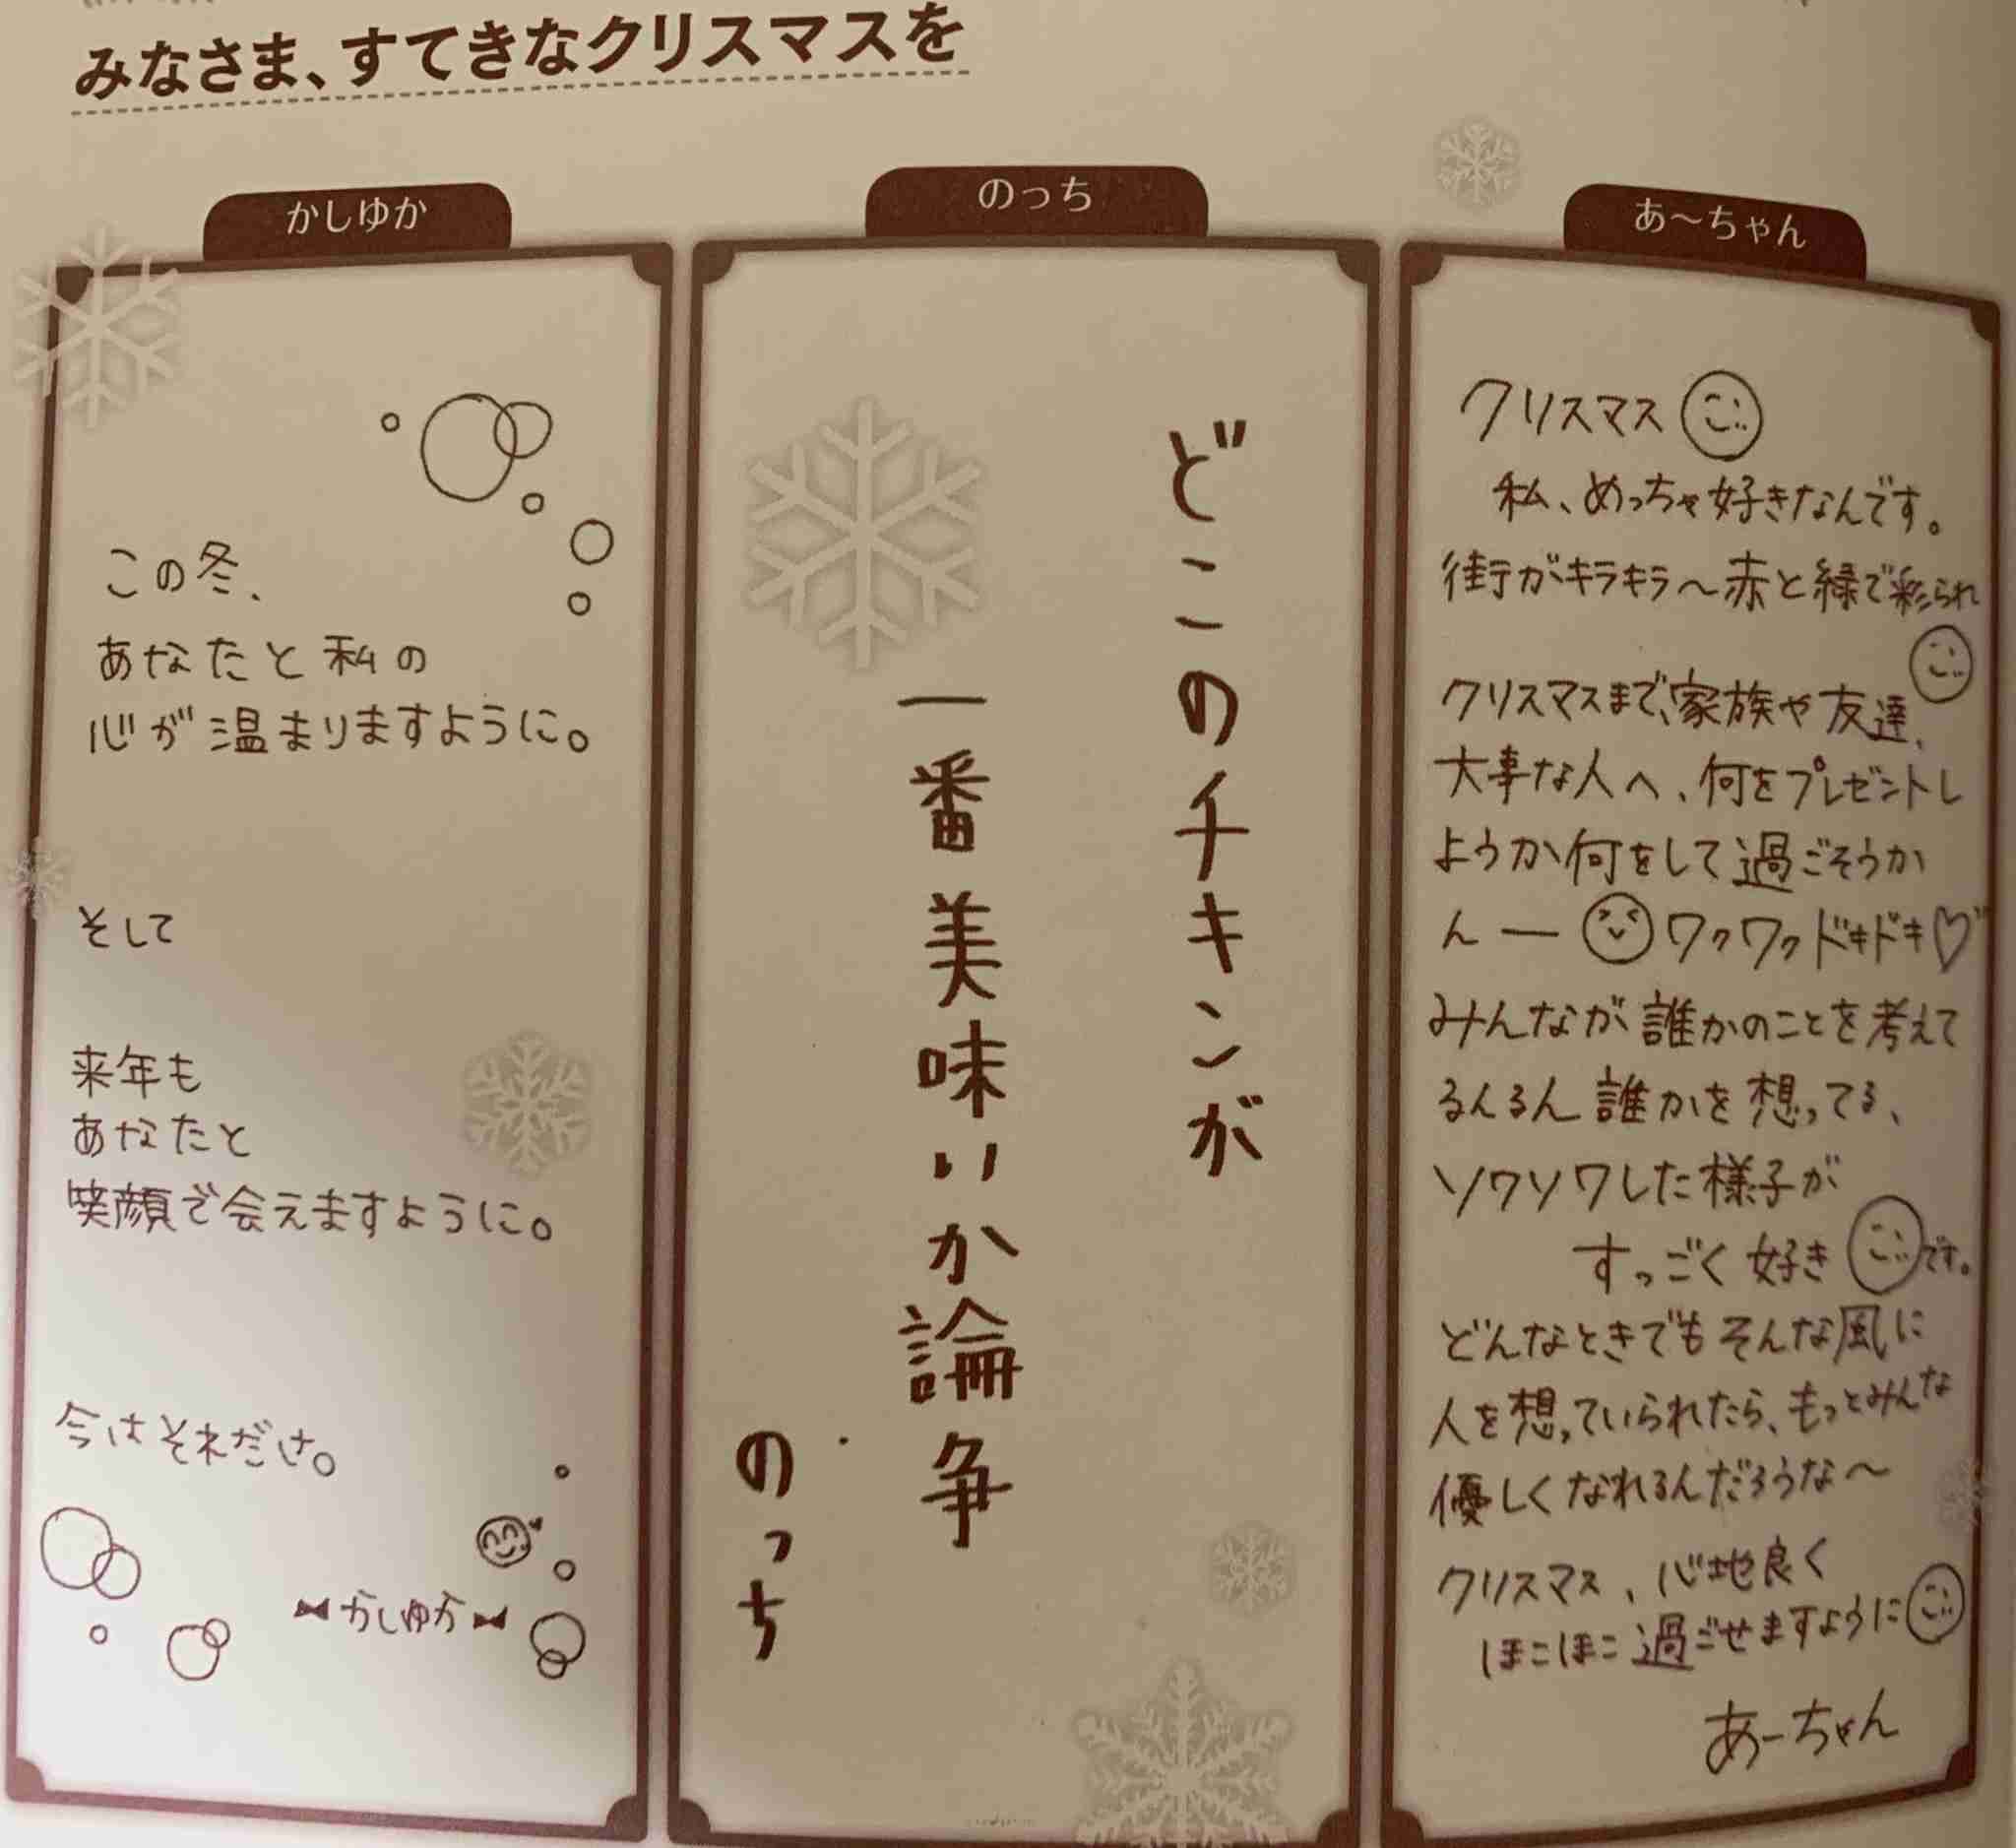 みなさま、すてきなクリスマスを
かしゆか
この冬、
あなたと私の
心が温まりますように。
そして
来年も
あなたと
笑顔で会えますように。
今はそれだけ。
かしゆか
のっち
どこのチキンが
一番美味いか論争
のっち
あ〜ちゃん
クリスマス
私、めっちゃ好きなんです。
街がキラキラ〜赤と緑で彩られ
クリスマスまで、家族や友達、
大事な人へ、何をプレゼントし
ようか何をして過ごそうか
んーワクワクドキドキ♡
みんなが誰かのことを考えて
るんるん誰かを想ってる、
ソワソワした様子が
すっごく好きです。
どんなときでもそんな風に
人を想っていられたら、もっとみんな
優しくなれるんだろうな〜
クリスマス、心地良く
ほこほこ過ごせますように
あーちゃん